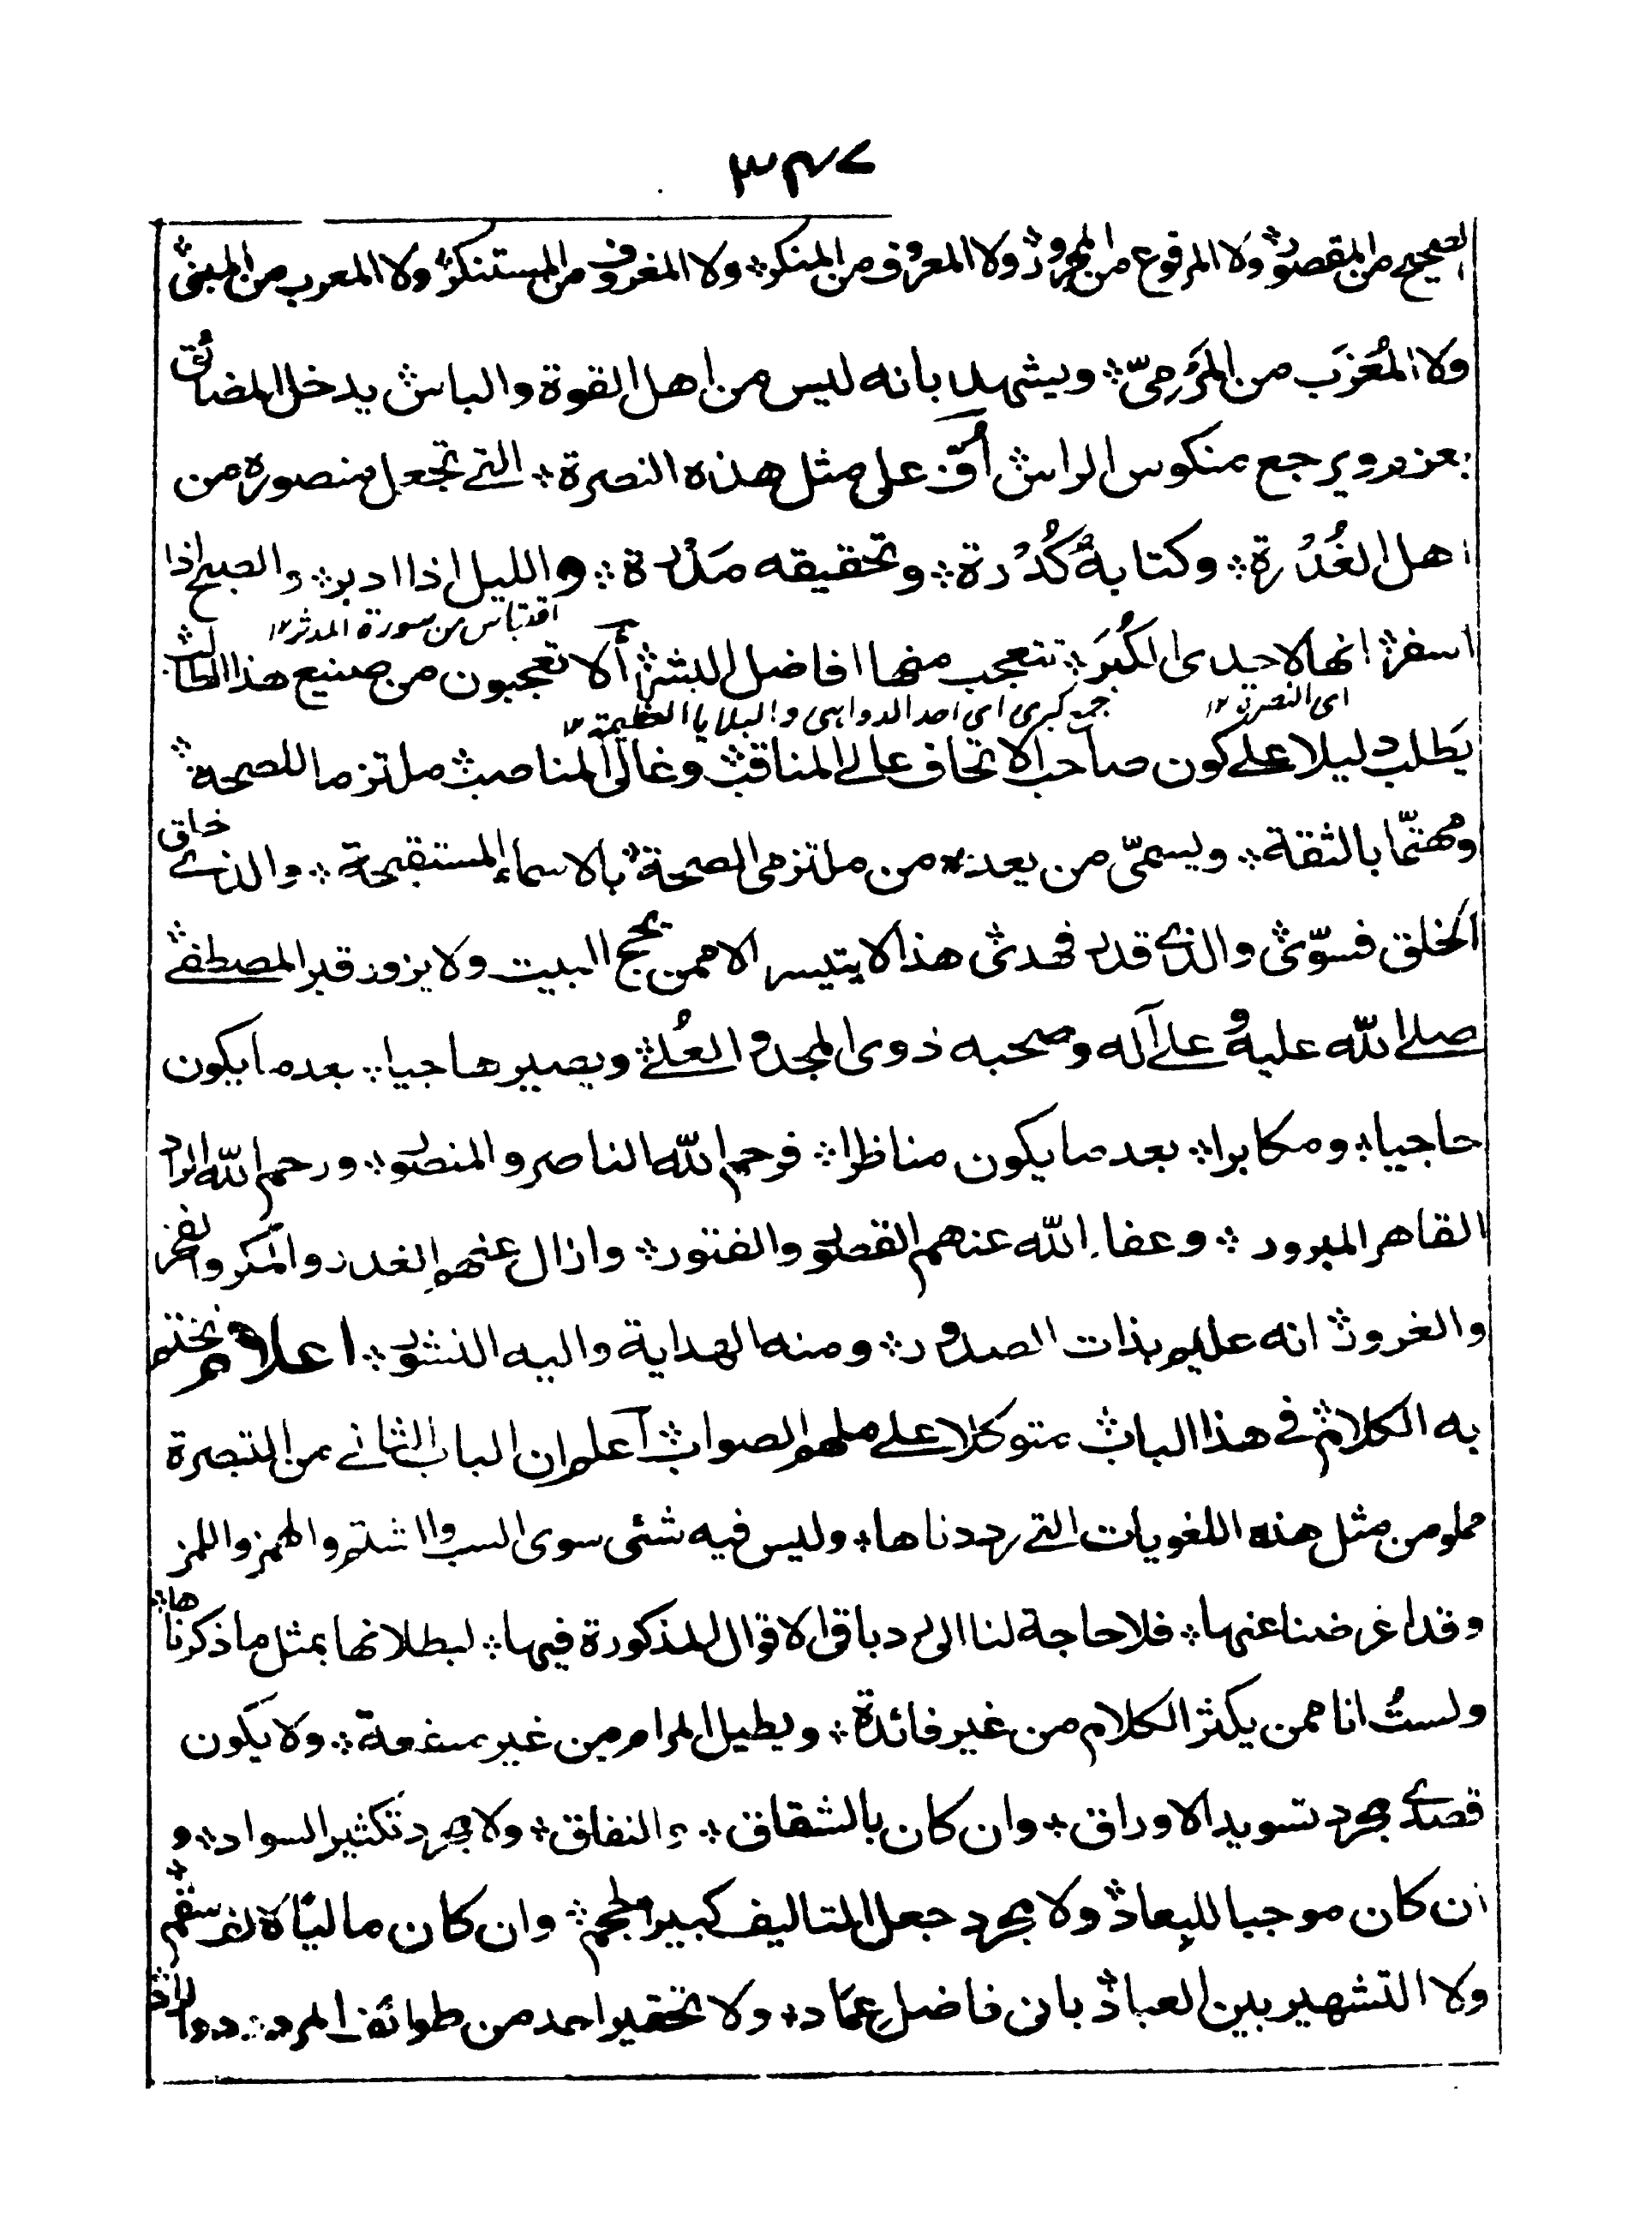 ٣٤٧
الصحيح من المقصور؞ ولا المرفوع من المجرور؞ ولا المعروف من المنكر؞ ولا المغروف من المستنكر؞ ولا المعرب من المبنى؞
ولا المُغرَب من المَرْمِىّ؞ ويشهد بانه ليس من اهل القوة والباس؞ يدخل المضائق
بعزم ويرجع منكوس الراس؞ اُفّ على مثل هذه النصرة؞ التے تجعل منصوره من
اهل الغُدْرة؞ وكتابهٗ كُدْرة؞ وتحقيقه مَدْرة؞ والليل اذا ادبر؞ والصبح اذا
اقتباس من سورة المدثر١٢
اسفر؞ انها لاحدى الكُبَر؞ تتعجب منها افاضل البشر؞ ألا تعجبون من صنيع هذا الطالب؞
اى النصرة١٢ جمع كبرى اى احد الدواهى والبلايا العظيمة١٢
يَطلب دليلا علے كون صاحب الاتحاف عالے المناقب؞ وغالى المناصب؞ ملتزما للصحة؞
ومهتمّا بالثقة؞ ويسمىّ من يعده من ملتزمى الصحة؞ بالاسماء المستقبحة؞ والذے خلق
الخلق فسوّى؞ والذے قدر فهدى؞ هذا لا يتيسر الا ممن يحج البيت ولا يزور قبر المصطفے؞
صلے الله عليه وعلے آله وصحبه ذوى المجد والعُلے؞ ويصير هاجيا؞ بعد ما يكون
حاجيا؞ ومكابرا؞ بعد ما يكون مناظرا؞ فرحم الله الناصر والمنصور؞ ورحم الله الراد
القاهر المبرور؞ وعفا الله عنهم القصور والفتور؞ وازال عنهم الغدر والمكر والفخر
والغرور؞ انه عليم بذات الصدور؞ ومنه الهداية واليه النشور؞ اعلام نختم
به الكلام؞ فى هذا الباب؞ متوكلا علے ملهم الصواب؞ اعلم ان الباب الثانے من التبصرة
مملو من مثل هذه اللغويات التے رددناها؞ وليس فيه شئى سوى السب والشتم والهمز واللمز
وقد اعرضنا عنها؞ فلا حاجة لنا الى رد باقى الاقوال المذكورة فيها؞ لبطلانها بمثل ما ذكرناها؞
ولستُ انا ممن يكثر الكلام من غير فائدة؞ ويطيل المرام من غير منفعة؞ ولا يكون
قصدے مجرد تسويد الاوراق؞ وان كان بالشقاق؞ والنفاق؞ ولا مجرد تكثير السواد؞ و
ان كان موجبا للبعاد؞ ولا مجرد جعل التاليف كبير الحجم؞ وان كان ماليًا لاثر سقم؞
ولا التشهير بين العباد؞ بانى فاضل عِمَاد؞ ولا تحقير احمد من طوائف